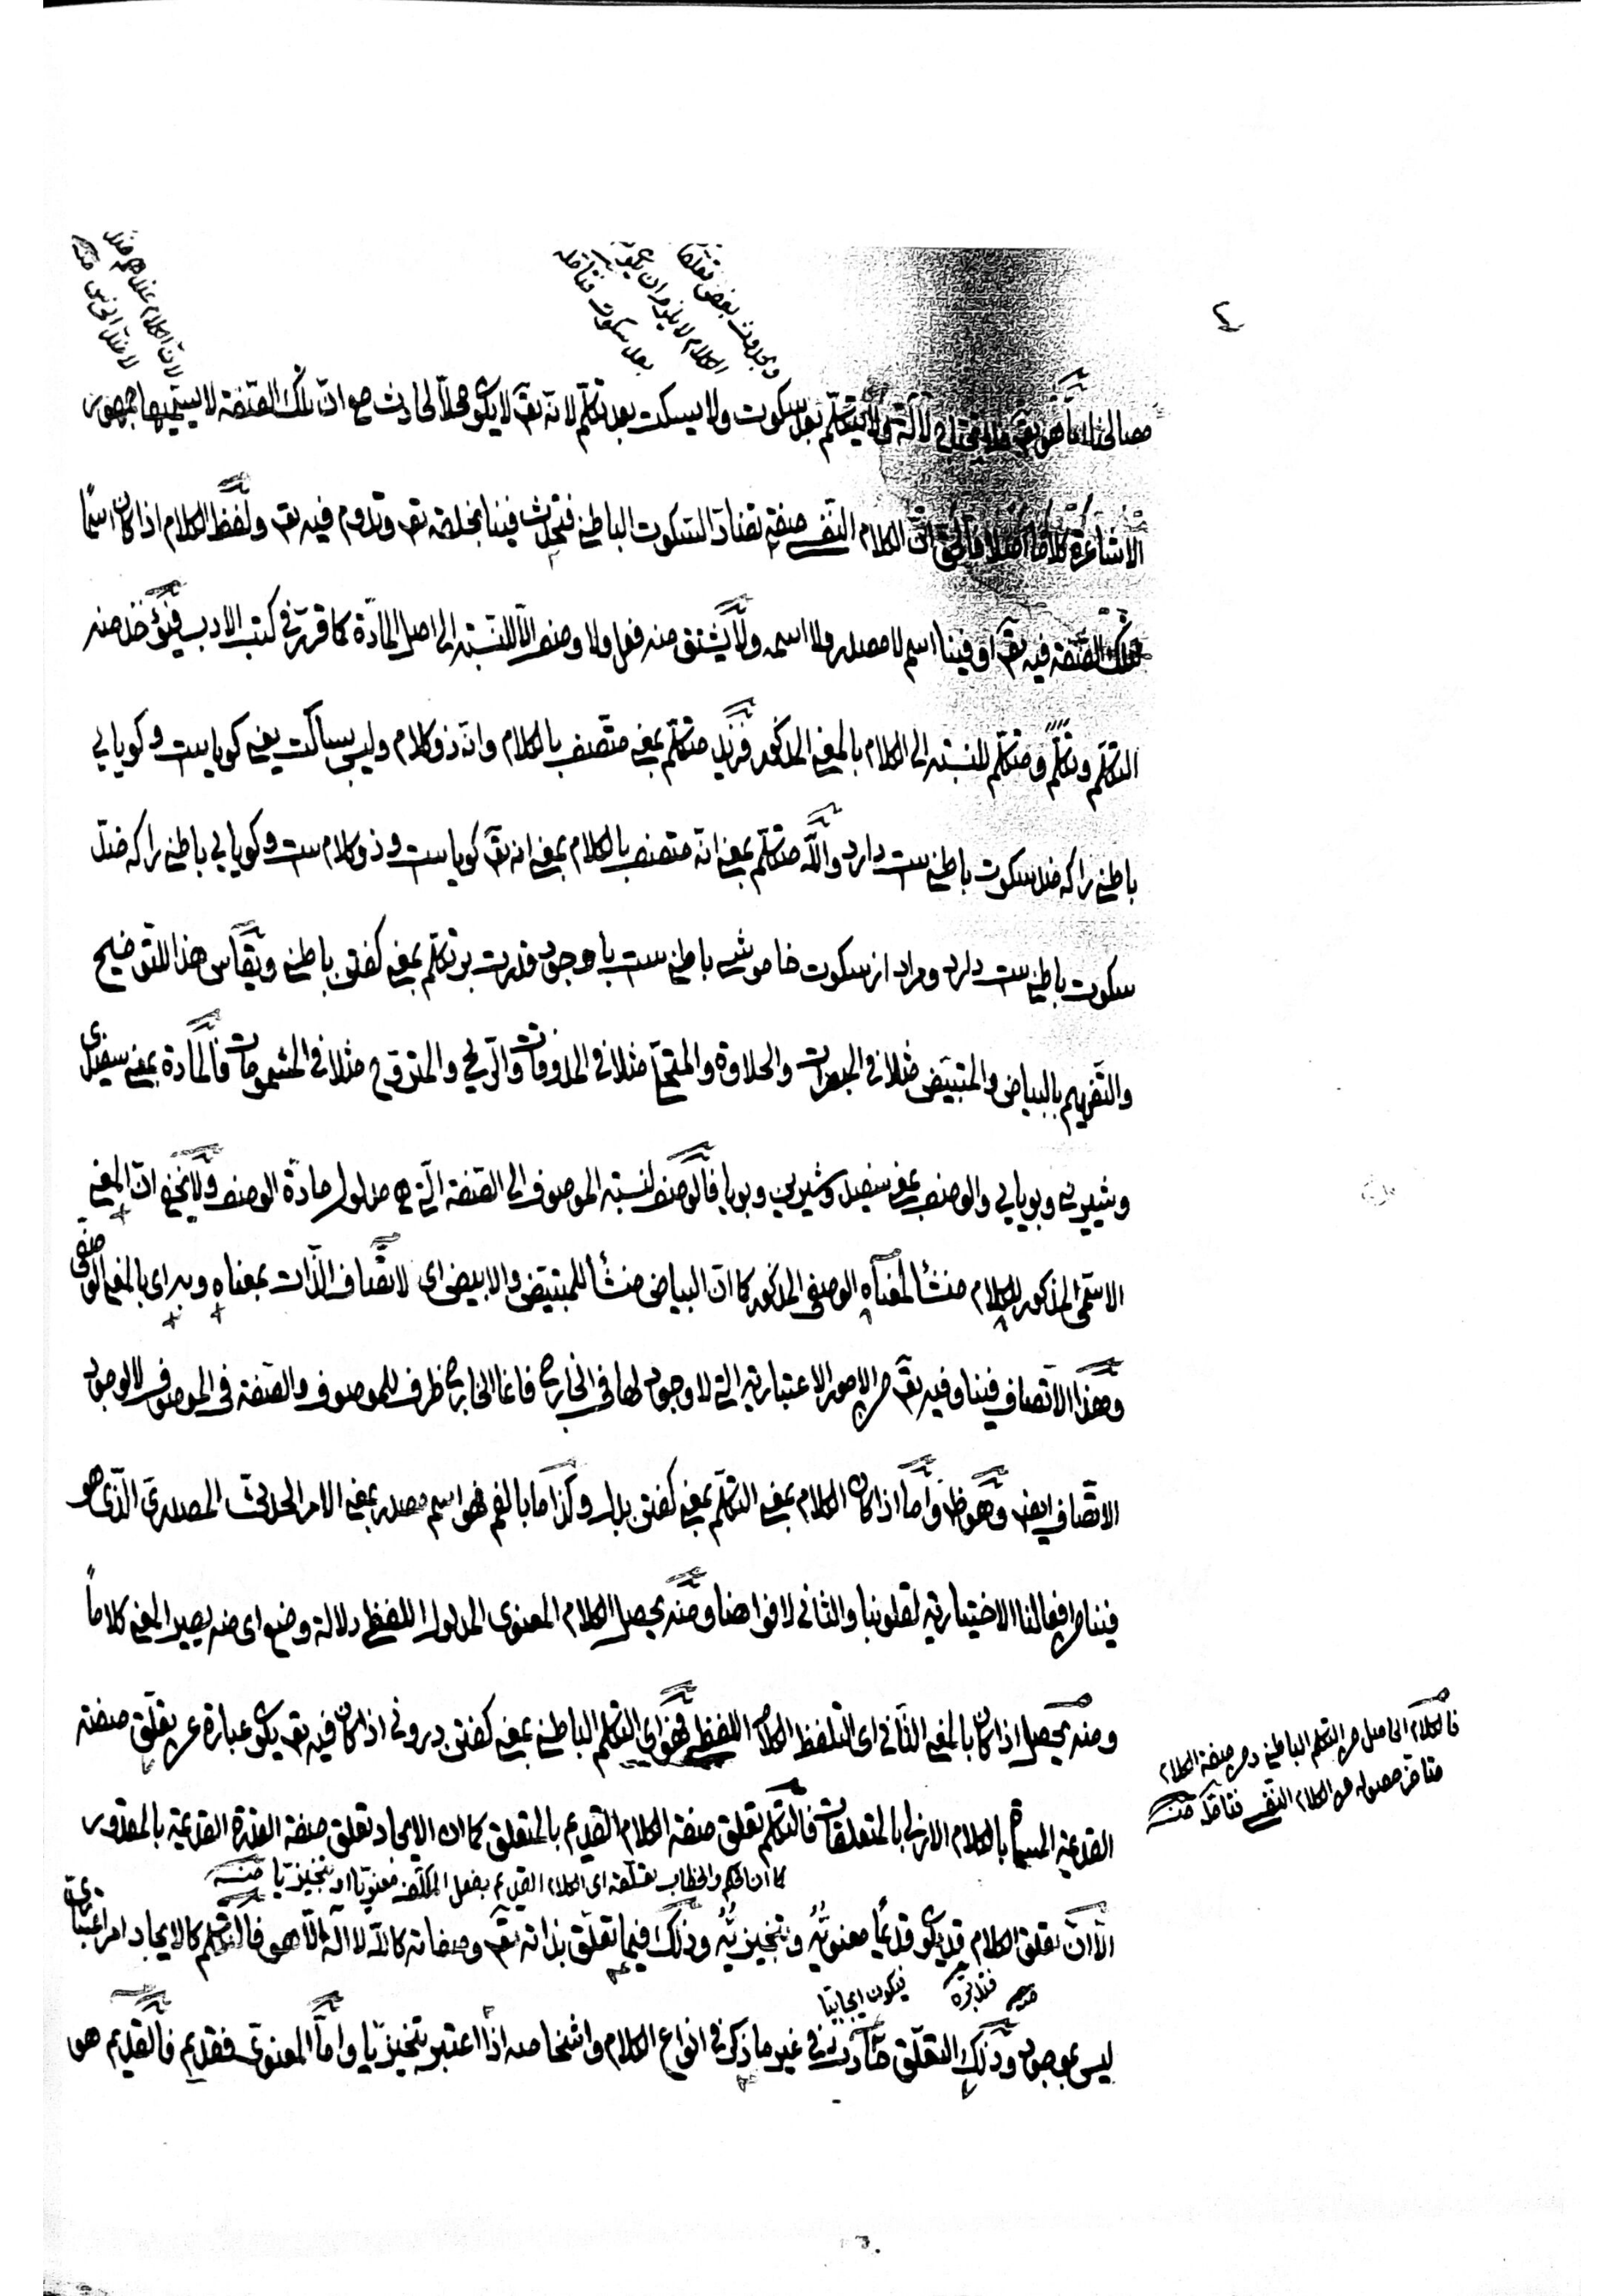 وبحدوث بعض تعلقا
الكلام لا يلزم ان يكون
بعد سكوت فتأمله
لان الكلام عنده ضد
لا عند الخرس منه
ولا يتكلم بعد سكوت ولا يسكت بعد تكلم لانه تع لا يكون محلا لحادث مع ان تلك الصفة لا يسميها جمهور
الاشاعرة كلاما اصلا فالحق ان الكلام النفسي صفة تضاد السكوت الباطني فتحدث فينا بخلقه تع وتدوم فيه تع ولفظ الكلام اذا كان اسما
لتلك الصفة فيه تع او فينا اسم لا مصدر ولا اسمه ولا يشتق منه فعل ولا وصف الا للنسبة الى اصل المادة كما قرر في كتب الادب فيؤخذ منه
التكلم وتكلم ومتكلم للنسبة الى الكلام بالمعنى المذكور فزيد متكلم بمعنى متصف بالكلام وانه ذو كلام وليس بساكت يعني كوياست وكويايي
باطني را كه ضد سكوت باطني ست دارد والله متكلم بمعنى انه متصف بالكلام بمعنى انه تع كوياست وذو كلام ست وكويايي باطني را كه ضد
سكوت باطني ست دارد ومراد از سكوت خاموشي باطني ست با وجود قدرت بر تكلم بمعنى كفتن باطني ويقاس هذا للتوضيح
والتفهيم بالبياض والمتبيض مثلا في المبصرات والحلاوة والمتحلي مثلا في المذوقات والريح والمتروح مثلا في المشمومات فالمادة بمعنى سفيدى
وشيريني وبويايي والوصف بمعنى سفيد وشيرين وبويا فالوصف لنسبة الموصوف الى الصفة التي هي مدلول مادة الوصف ولا يخفى ان المعنى
الاسمي المذكور للكلام منشأ لمعناه الوصفي المذكور كما ان البياض منشأ للمتبيض والابيض اى لاتصاف الذات بمعناه وبه اى بالمعنى الوصفي
وهذا الاتصاف فينا وفيه تع من الامور الاعتبارية التي لا وجود لها في الخارج فانما الخارج ظرف للموصوف والصفة في الموصوف لا لوجود
الاتصاف ايضا وهو ظ واما اذا كان الكلام بمعنى التكلم بمعنى كفتن بدل وكذا ما بالفم فهو اسم مصدر بمعنى الامر الحدثي المصدري الذي هو
فينا من افعالنا الاختيارية لقلوبنا والثاني لافواهنا ومنه يحصل الكلام المعنوي المدلول للفظ دلالة وضع اى منه يصير المعنى كلاما
ومنه يحصل اذا كان بالمعنى الثاني اى التلفظ الكلام اللفظي فهو اى التكلم الباطني بمعنى كفتن دروني اذا كان فيه تع يكون عبارة عن تعلق صفته
القديمة المسماة بالكلام الازلي بالمتعلقات فالتكلم تعلق صفة الكلام القديم بالمتعلق كما ان الايجاد تعلق صفة القدرة القديمة بالمقدور
كما ان الحكم والخطاب تعلقه اى الكلام القديم بفعل المكلف معنويا او تنجيزيا منه
الا ان تعلق الكلام قد يكون قديما معنويه وتنجيزيه وذلك فيما تعلق بذاته تع وصفاته كالله لا اله الا هو فالتكلم كالايجاد امر اعتباري
فيكون ايجابيا فتدبره منه
ليس بموجود وذلك التعلق حادث في غير ما ذكر في انواع الكلام واشخاصه اذا اعتبر تنجيزيا واما المعنوي فقديم فالقديم هو
فالكلام الحاصل من التكلم الباطني ومن صفة الكلام
متأخر حصوله من الكلام النفسي فتأمل منه